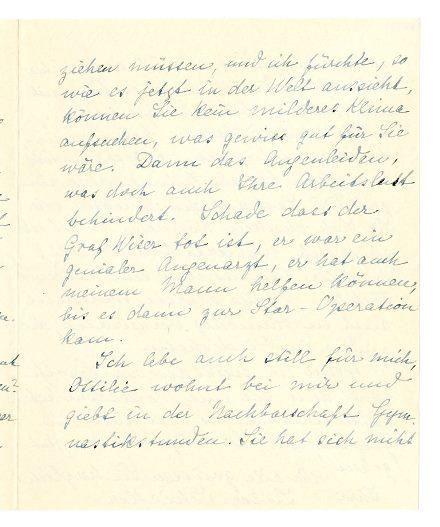 ziehen müssen, und ich fürchte, so
wie es jetzt in der Welt aussieht,
können Sie kein milderes Klima
aufsuchen, was gewiss gut für Sie
wäre. Dann das Augenleiden,
was doch auch Ihre Arbeitslust
behindert. Schade dass der
Graf Wiser tot ist, er war ein
genialer Augenarzt, er hat auch
meinem Mann helfen können,
bis es dann zur Star-Operation
kam.
Ich lebe auch still für mich,
Ottilie wohnt bei mir und
giebt in der Nachbarschaft Gym-
nastikstunden. Sie hat sich nicht